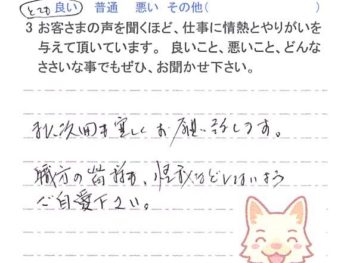 とても 良い 普通 悪い その他( )
3 お客さまの声を聞くほど、仕事に情熱とやりがいを
与えて頂いています。 良いこと、悪いこと、どんな
ささいな事でもぜひ、お聞かせ下さい。
又、次回も宜しくお願い致します。
職方の皆様も、怪我などしないよう
ご自愛下さい。